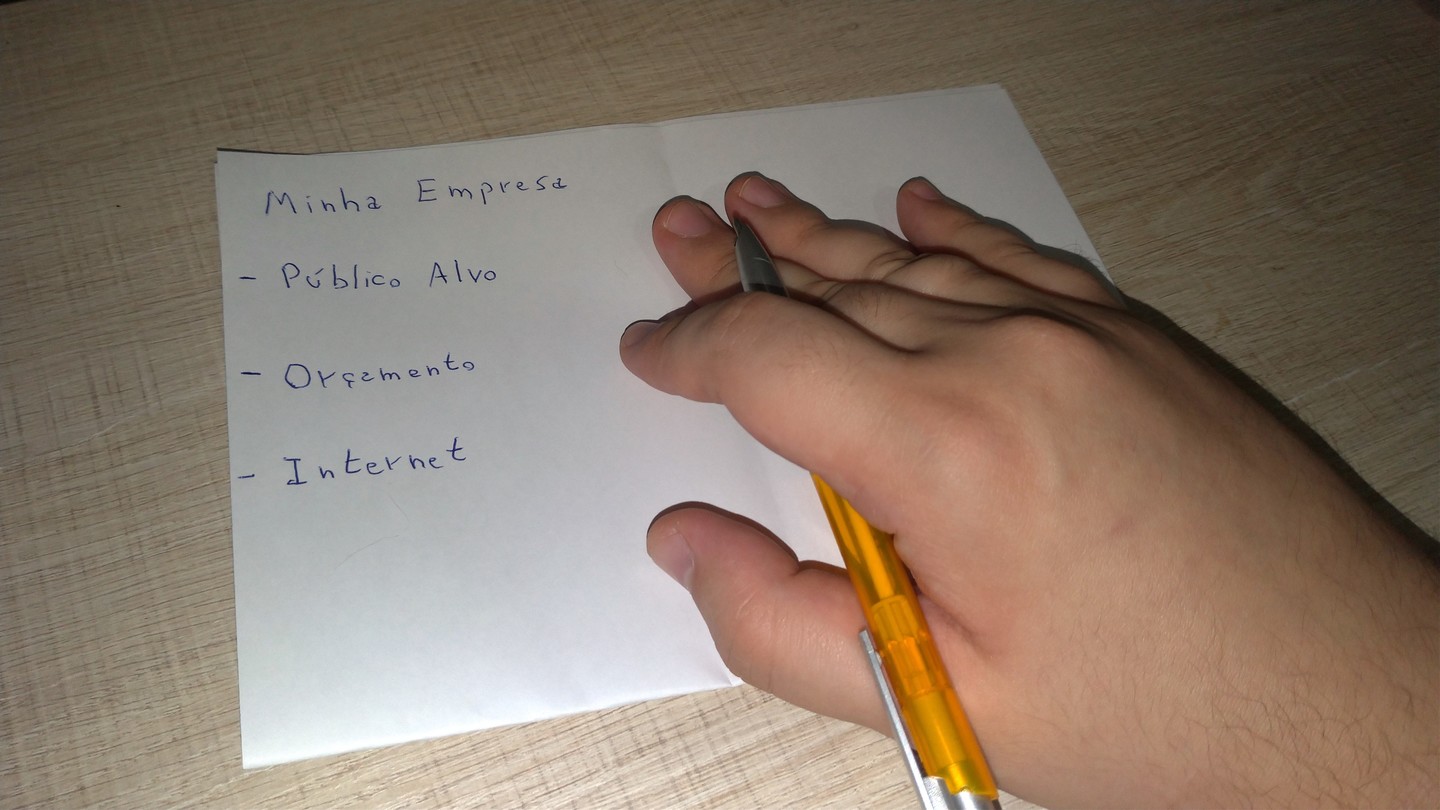 Minha Empresa
- Público Alvo
- Orçamento
- Internet